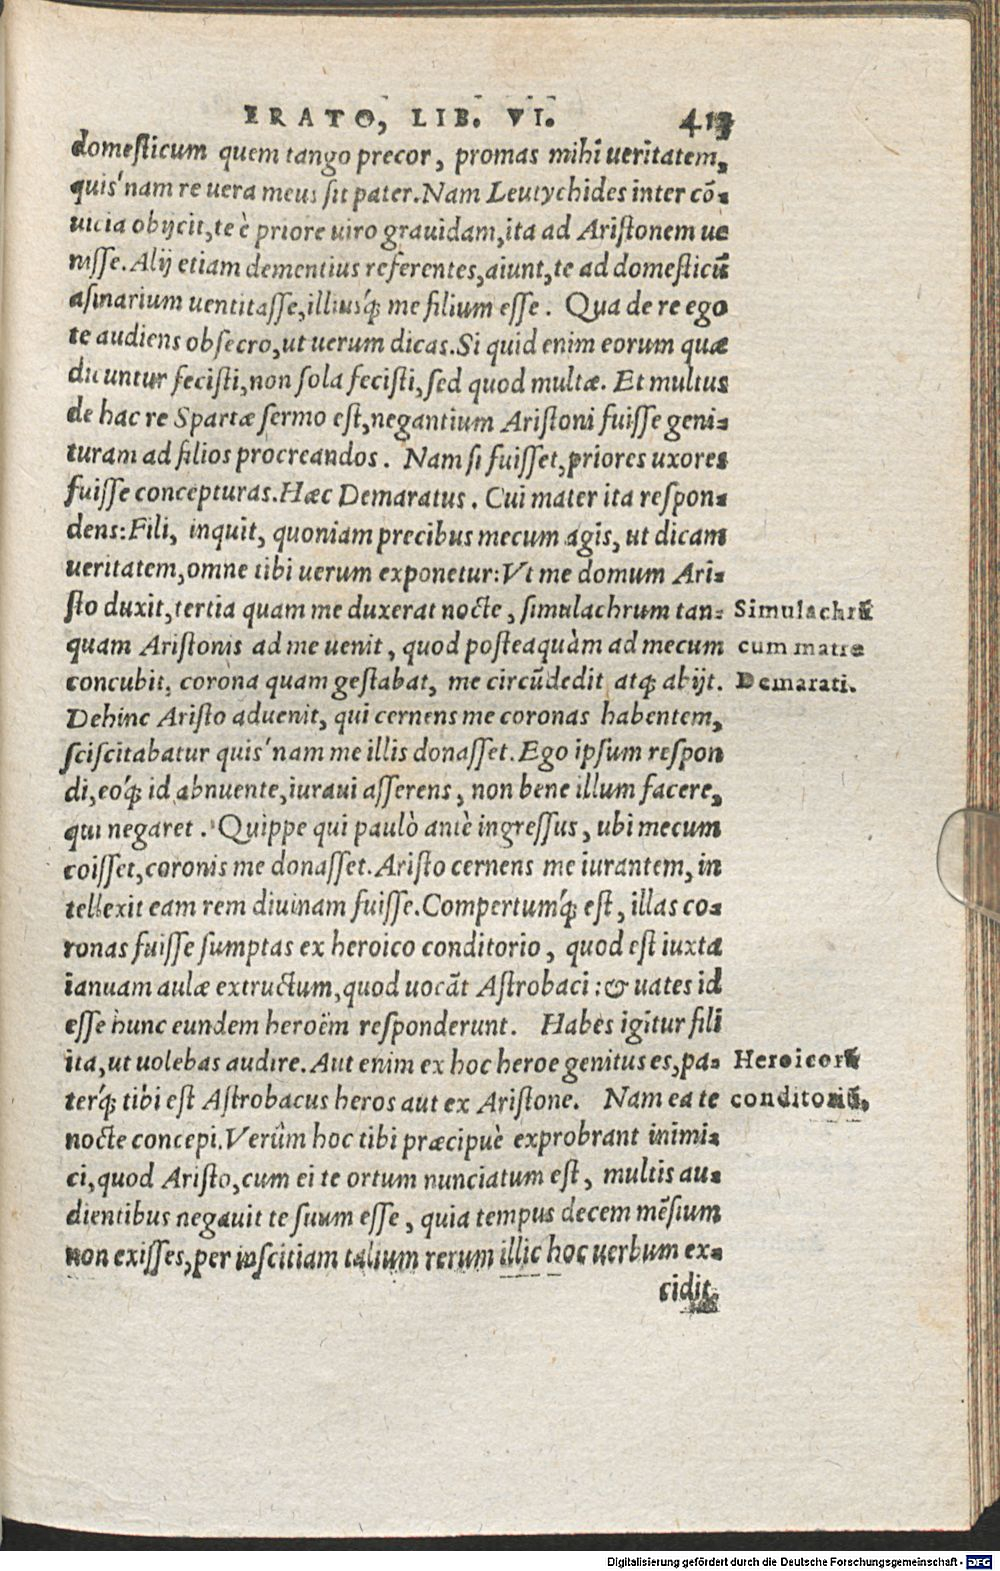 ERATO, LIB. VI. 413
domesticum quem tango precor, promas mihi ueritatem,
quis'nam re uera meus sit pater. Nam Leutychides inter cō-
uicia obijcit, te è priore uiro grauidam, ita ad Aristonem ue
nisse. Alij etiam dementius referentes, aiunt, te ad domesticū
asinarium uentitasse, illiusq́; me filium esse. Qua de re ego
te audiens obsecro, ut uerum dicas. Si quid enim eorum quæ
dicuntur fecisti, non sola fecisti, sed quod multæ. Et multus
de hac re Spartæ sermo est, negantium Aristoni fuisse geni-
turam ad filios procreandos. Nam si fuisset, priores uxores
fuisse concepturas. Hæc Demaratus. Cui mater ita respon-
dens: Fili, inquit, quoniam precibus mecum agis, ut dicam
ueritatem, omne tibi uerum exponetur: Vt me domum Ari-
sto duxit, tertia quam me duxerat nocte, simulachrum tan- Simulachrū
quam Aristonis ad me uenit, quod posteaquàm ad mecum cum matre
concubit, corona quam gestabat, me circūdedit atq; abijt. Demarati.
Dehinc Aristo aduenit, qui cernens me coronas habentem,
sciscitabatur quis'nam me illis donasset. Ego ipsum respon
di, eoq́; id abnuente, iuraui asserens, non bene illum facere,
qui negaret. Quippe qui paulò antè ingressus, ubi mecum
coisset, coronis me donasset. Aristo cernens me iurantem, in
tellexit eam rem diuinam fuisse. Compertumq́; est, illas co-
ronas fuisse sumptas ex heroico conditorio, quod est iuxta
ianuam aulæ extructum, quod uocāt Astrobaci: & uates id
esse hunc eundem heroëm responderunt. Habes igitur fili
ita, ut uolebas audire. Aut enim ex hoc heroe genitus es, pa- Heroicorū
terq́; tibi est Astrobacus heros aut ex Aristone. Nam ea te conditoriū,
nocte concepi. Verùm hoc tibi præcipuè exprobrant inimi-
ci, quod Aristo, cum ei te ortum nunciatum est, multis au-
dientibus negauit te suum esse, quia tempus decem mēsium
non exisses, per inscitiam talium rerum illic hoc uerbum ex-
cidit.
Digitalisierung gefördert durch die Deutsche Forschungsgemeinschaft - DFG